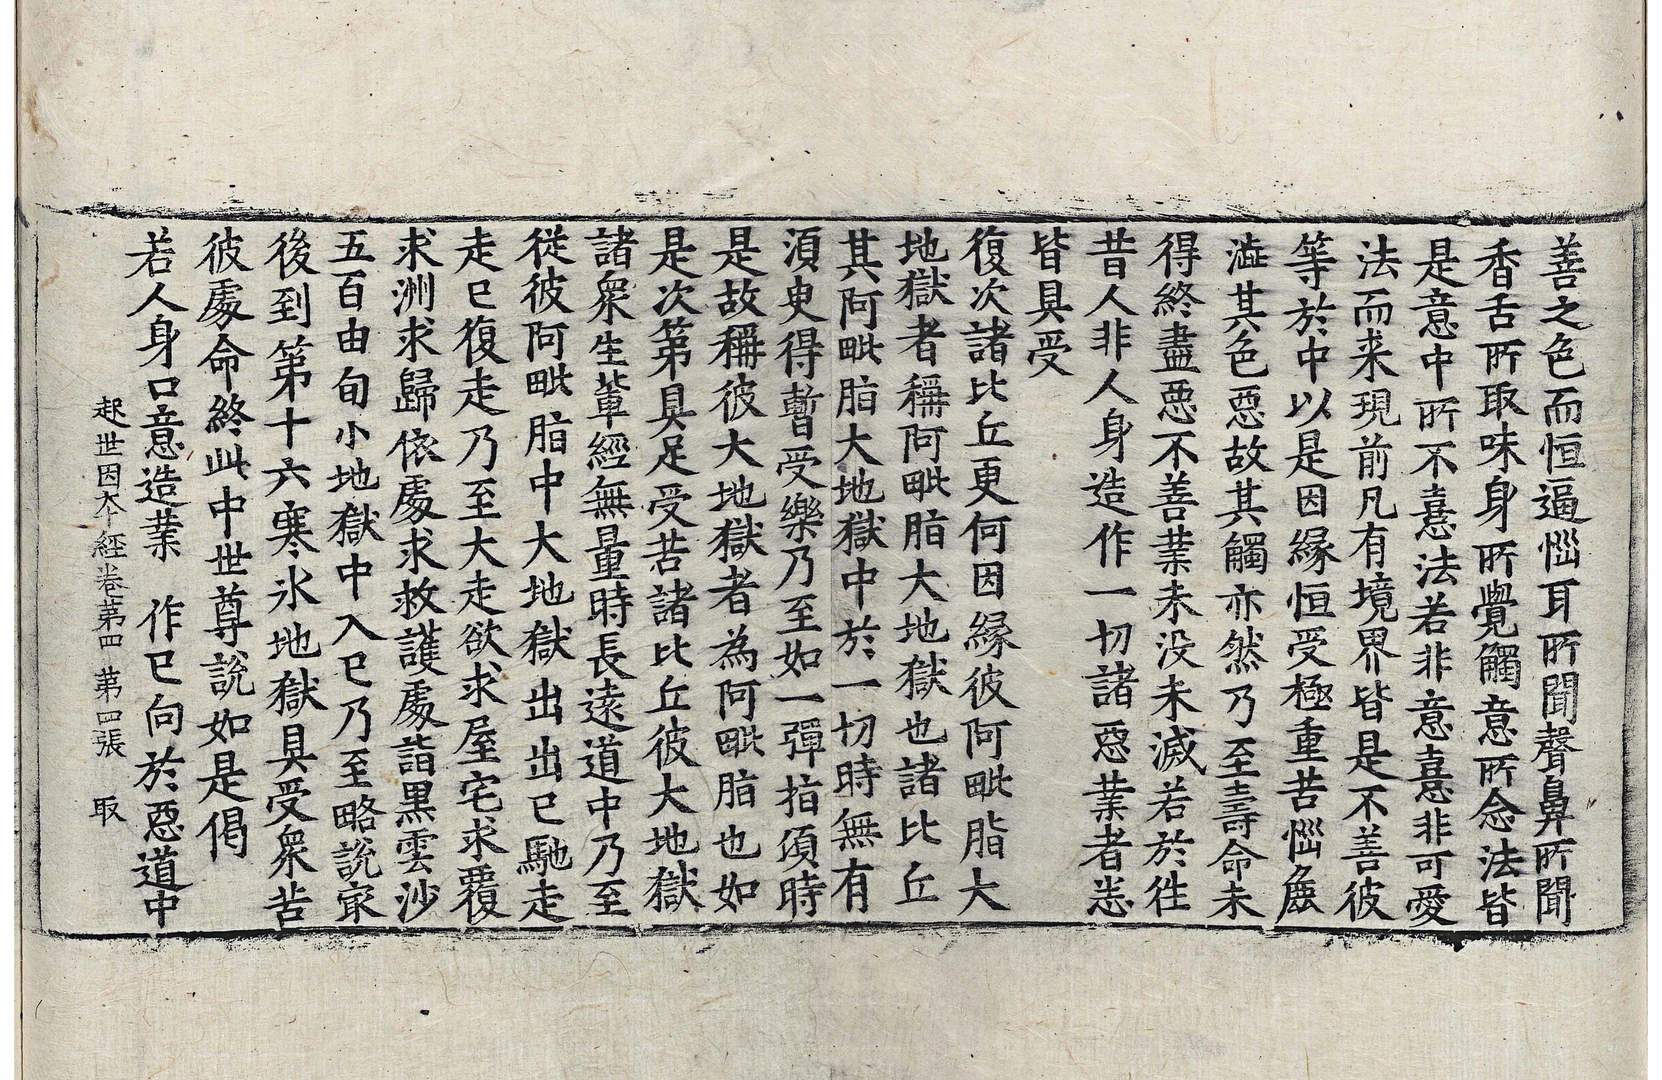 善之色而恒逼惱耳所聞聲鼻所聞
香舌所取味身所覺觸意所念法皆
是意中所不憙法若非意憙非可愛
法而来現前凡有境界皆是不善彼
等於中以是因緣恒受極重苦惱麁
澁其色惡故其觸亦然乃至壽命未
得終盡惡不善業未没未滅若於徃
昔人非人身造作一切諸惡業者悉
皆具受
復次諸比丘更何因緣彼阿毗脂大
地獄者稱阿毗脂大地獄也諸比丘
其阿毗脂大地獄中於一切時無有
湏臾得暫受樂乃至如一彈指湏時
是故稱彼大地獄者為阿毗脂也如
是次第具足受苦諸比丘彼大地獄
諸衆生軰經無量時長遠道中乃至
従彼阿毗脂中大地獄出出已馳走
走已復走乃至大走欲求屋宅求覆
求洲求歸依處求救護處詣黒雲沙
五百由旬小地獄中入已乃至略說㝡
後到第十六寒氷地獄具受衆苦
彼處命終此中世尊說如是偈
若人身口意造業 作已向於惡道中
起世因夲經卷第四 第四張 取